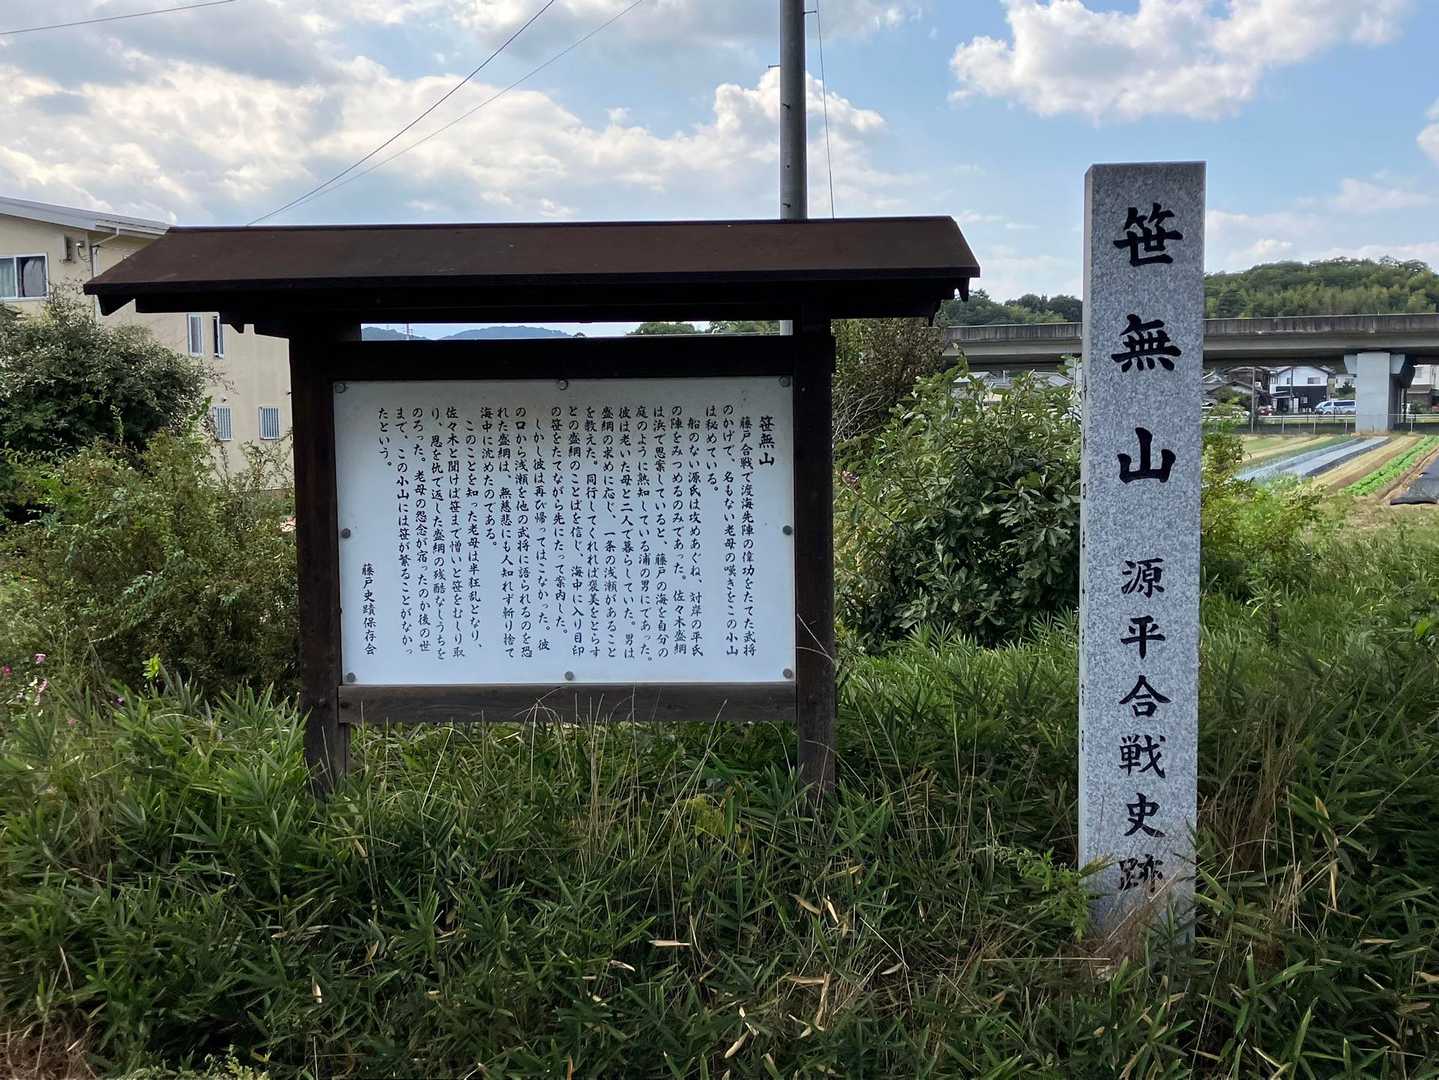 笹無山 源平合戦史跡
笹無山
藤戸合戦で渡海先陣の偉功をたてた武将
のかげで、名もない老母の嘆きをこの小山
は秘めている。
船のない源氏は攻めあぐね、対岸の平氏
の陣をみつめるのみであった。佐々木盛綱
は浜で思案していると、藤戸の海を自分の
庭のように熟知している浦の男にであった。
彼は老いた母と二人で暮らしていた。男は
盛綱の求めに応じ、一条の浅瀬があること
を教えた。同行してくれれば褒美をとらす
との盛綱のことばを信じ、海中に入り目印
の笹をたてながら先にたって案内した。
しかし彼は再び帰ってはこなかった。彼
の口から浅瀬を他の武将に語られるのを恐
れた盛綱は、無慈悲にも人知れず斬り捨て
海中に沈めたのである。
このことを知った老母は半狂乱となり、
佐々木と聞けば笹まで憎いと笹をむしり取
り、恩を仇で返した盛綱の残酷なしうちを
のろった。老母の怨念が宿ったのか後の世
まで、この小山には笹が繁ることがなかっ
たという。
藤戸史蹟保存会